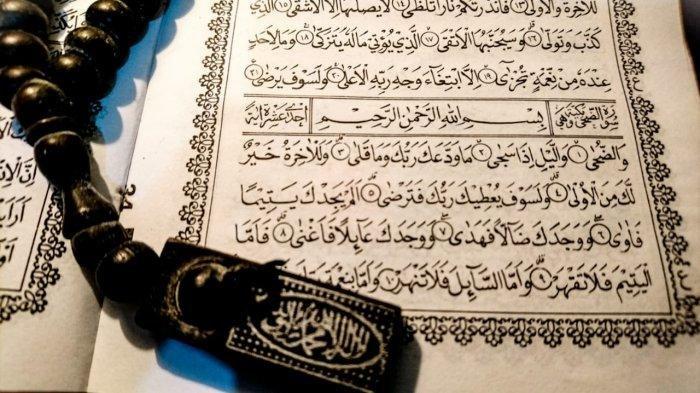 لَلْاٰخِرَةَ وَالْاُولٰى ۝١٣ فَاَنْذَرْتُكُمْ نَارًا تَلَظّٰى ۝١٤ لَا يَصْلٰىهَا اِلَّا الْاَشْقَى ۝١٥ الَّذِي
كَذَّبَ وَتَوَلّٰى ۝١٦ وَسَيُجَنَّبُهَا الْاَتْقَى ۝١٧ الَّذِي يُؤْتِي مَالَهُ يَتَزَكّٰى ۝١٨ وَمَا لِاَحَدٍ
عِنْدَهُ مِنْ نِعْمَةٍ تُجْزٰى ۝١٩ اِلَّا ابْتِغَاءَ وَجْهِ رَبِّهِ الْاَعْلٰى ۝٢٠ وَلَسَوْفَ يَرْضٰى ۝٢١
سورة الضحى مكية وهي بِسْمِ اللهِ الرَّحْمٰنِ الرَّحِيْمِ احدى عشرة اية
وَالضُّحٰى ۝١ وَالَّيْلِ اِذَا سَجٰى ۝٢ مَا وَدَّعَكَ رَبُّكَ وَمَا قَلٰى ۝٣ وَلَلْاٰخِرَةُ خَيْرٌ
لَكَ مِنَ الْاُولٰى ۝٤ وَلَسَوْفَ يُعْطِيْكَ رَبُّكَ فَتَرْضٰى ۝٥ اَلَمْ يَجِدْكَ يَتِيْمًا
فَاٰوٰى ۝٦ وَوَجَدَكَ ضَالًّا فَهَدٰى ۝٧ وَوَجَدَكَ عَائِلًا فَاَغْنٰى ۝٨ فَاَمَّا
الْيَتِيْمَ فَلَا تَقْهَرْ ۝٩ وَاَمَّا السَّائِلَ فَلَا تَنْهَرْ ۝١٠ وَاَمَّا بِنِعْمَةِ